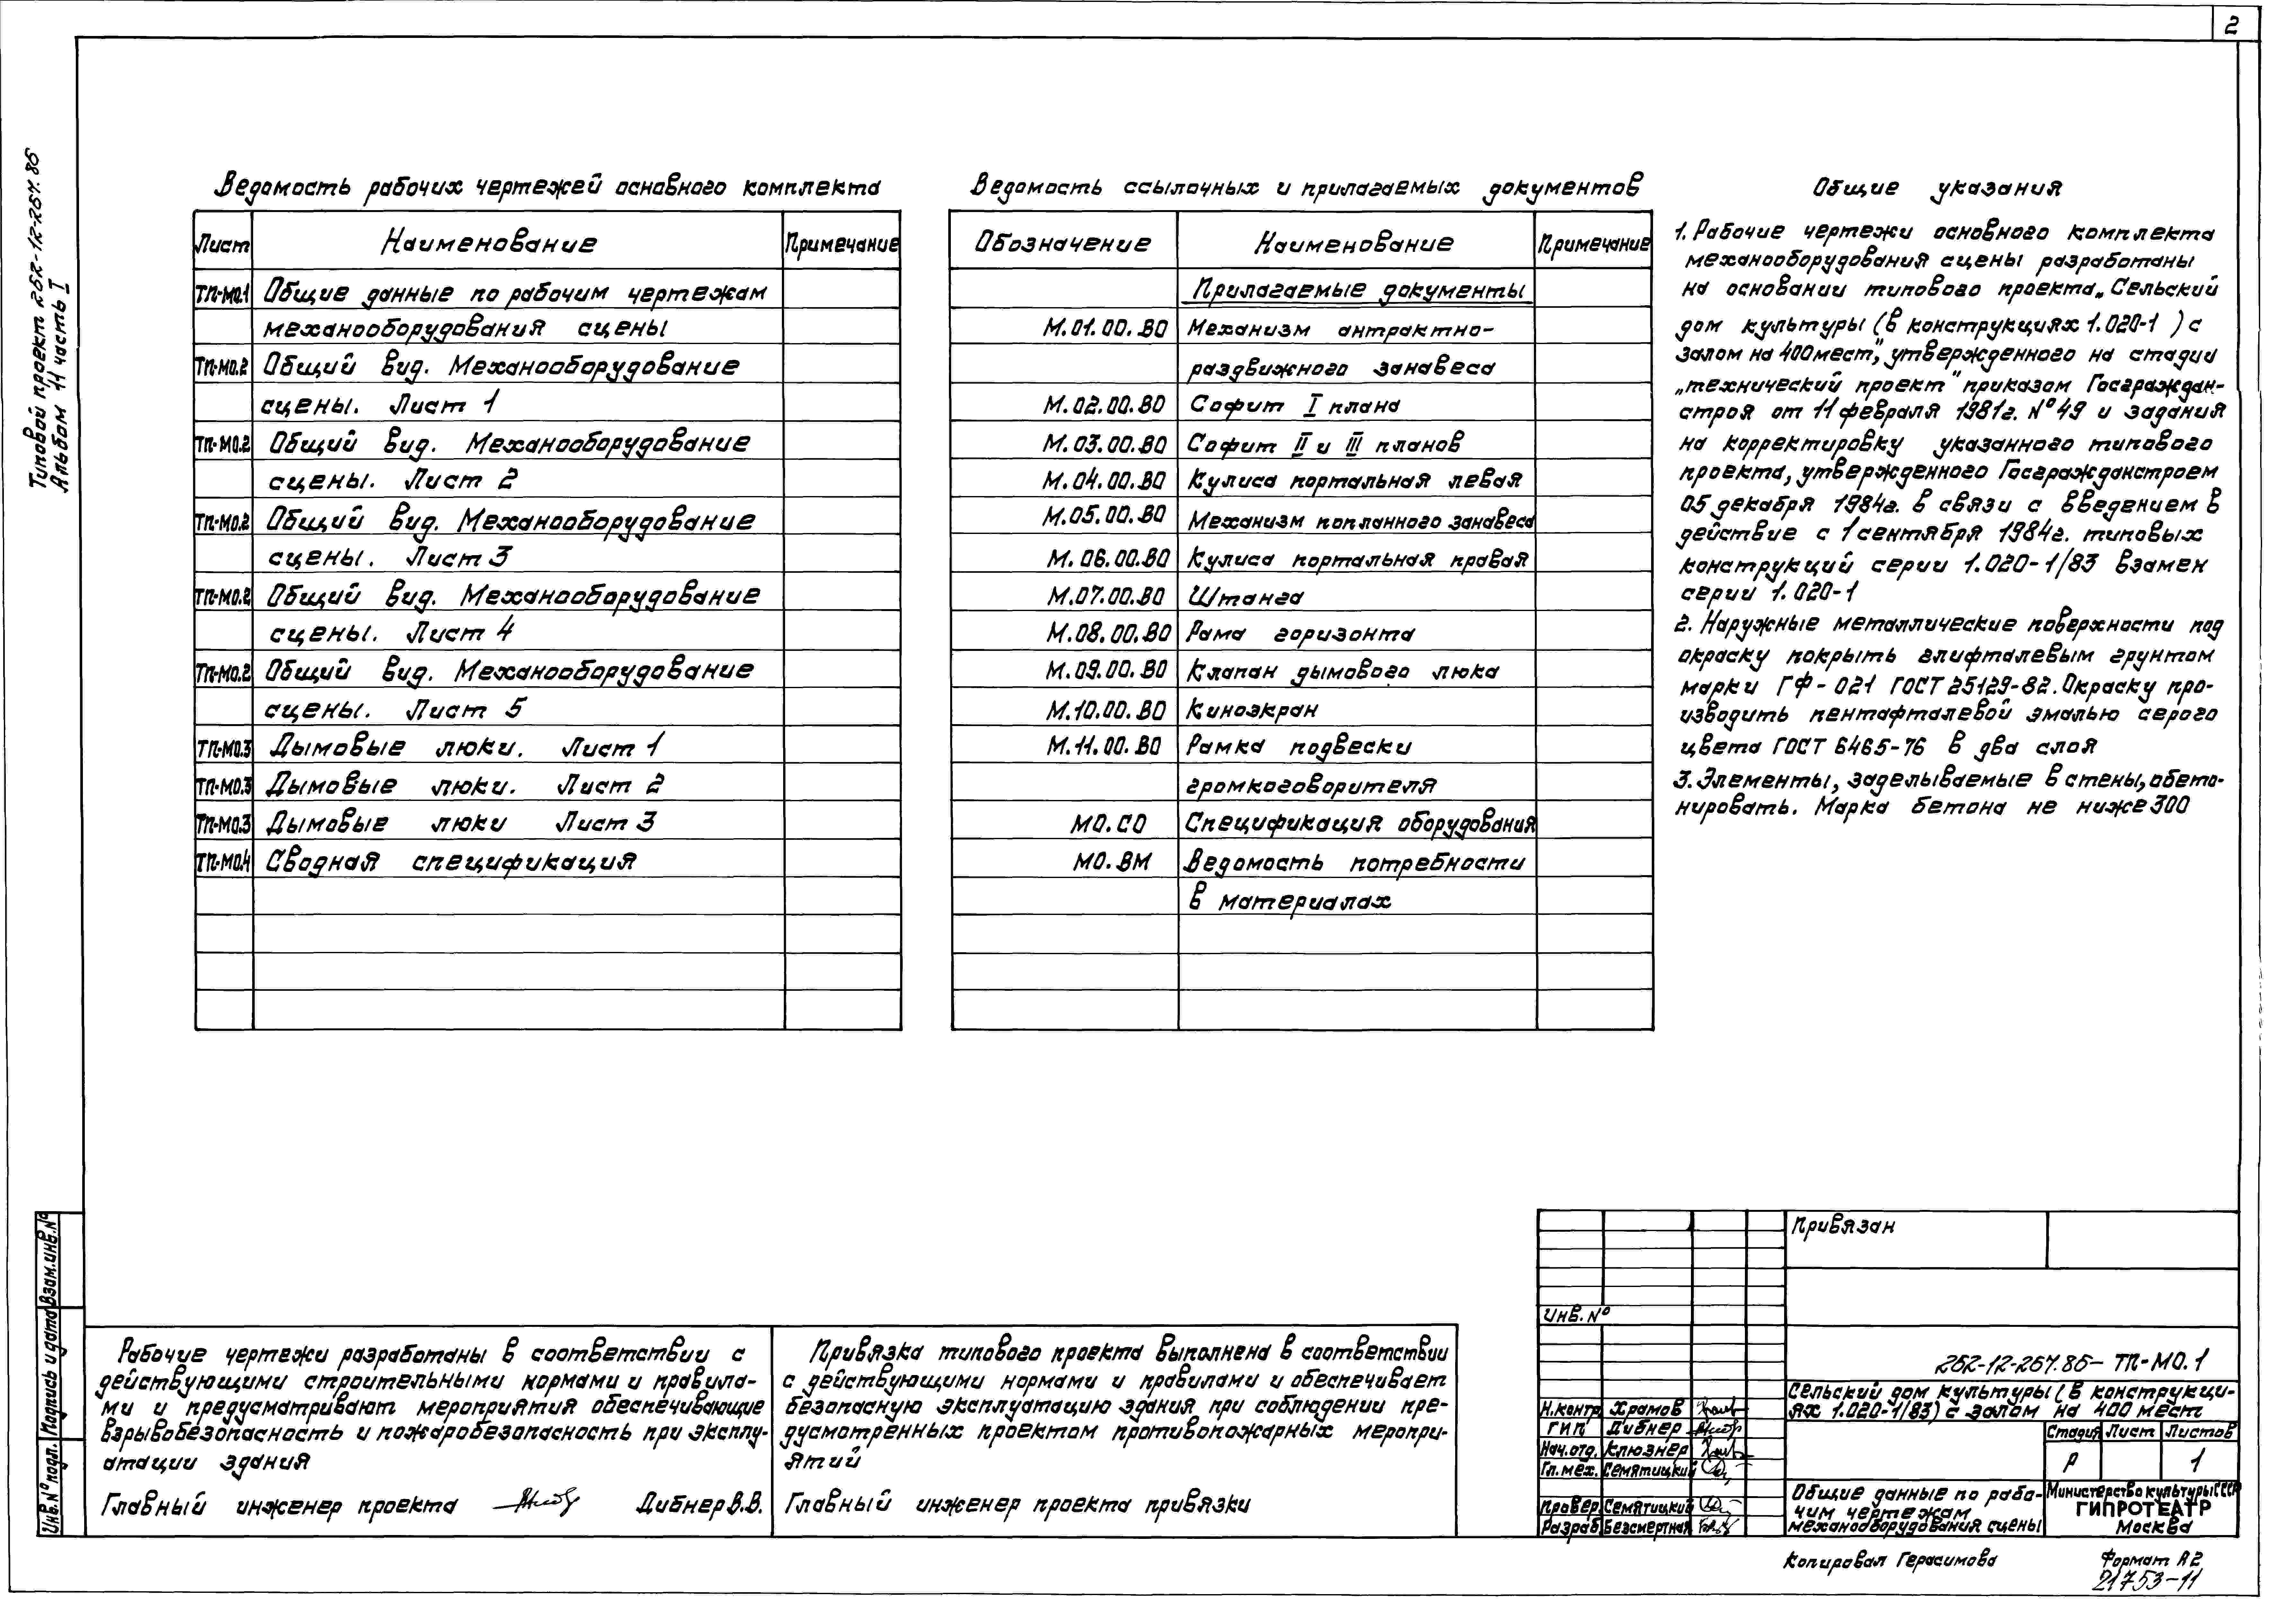 2
Типовой проект 262-12-267.86
Альбом 11 часть I
Ведомость рабочих чертежей основного комплекта
Лист Наименование Примечание
ТП-МО.1 Общие данные по рабочим чертежам
механооборудования сцены
ТП-МО.2 Общий вид. Механооборудование
сцены. Лист 1
ТП-МО.2 Общий вид. Механооборудование
сцены. Лист 2
ТП-МО.2 Общий вид. Механооборудование
сцены. Лист 3
ТП-МО.2 Общий вид. Механооборудование
сцены. Лист 4
ТП-МО.2 Общий вид. Механооборудование
сцены. Лист 5
ТП-МО.3 Дымовые люки. Лист 1
ТП-МО.3 Дымовые люки. Лист 2
ТП-МО.3 Дымовые люки Лист 3
ТП-МО.4 Сводная спецификация
Ведомость ссылочных и прилагаемых документов
Обозначение Наименование Примечание
Прилагаемые документы
М.01.00.ВО Механизм антрактно-
раздвижного занавеса
М.02.00.ВО Софит I плана
М.03.00.ВО Софит II и III планов
М.04.00.ВО Кулиса портальная левая
М.05.00.ВО Механизм попланного занавеса
М.06.00.ВО Кулиса портальная правая
М.07.00.ВО Штанга
М.08.00.ВО Рама горизонта
М.09.00.ВО Клапан дымового люка
М.10.00.ВО Киноэкран
М.11.00.ВО Рамка подвески
громкоговорителя
МО.СО Спецификация оборудования
МО.ВМ Ведомость потребности
в материалах
Общие указания
1. Рабочие чертежи основного комплекта
механооборудования сцены разработаны
на основании типового проекта „Сельский
дом культуры (в конструкциях 1.020-1 ) с
залом на 400 мест", утвержденного на стадии
„технический проект" приказом Госграждан-
строя от 11 февраля 1981г. №49 и задания
на корректировку указанного типового
проекта, утвержденного Госгражданстроем
05 декабря 1984г. в связи с введением в
действие с 1 сентября 1984г. типовых
конструкций серии 1.020-1/83 взамен
серии 1.020-1
2. Наружные металлические поверхности под
окраску покрыть глифталевым грунтом
марки ГФ-021 ГОСТ 25129-82. Окраску про-
изводить пентафталевой эмалью серого
цвета ГОСТ 6465-76 в два слоя
3. Элементы, заделываемые в стены, обето-
нировать. Марка бетона не ниже 300
Рабочие чертежи разработаны в соответствии с
действующими строительными нормами и правила-
ми и предусматривают мероприятия обеспечивающие
взрывобезопасность и пожаробезопасность при эксплу-
атации здания
Главный инженер проекта Дибнер В.В.
Привязка типового проекта выполнена в соответствии
с действующими нормами и правилами и обеспечивает
безопасную эксплуатацию здания при соблюдении пре-
дусмотренных проектом противопожарных меропри-
ятий
Главный инженер проекта привязки
Взам.инв.№
Подпись и дата
Инв.№ подл.
Привязан
Инв.№
262-12-267.86- ТП-МО.1
Сельский дом культуры (в конструкци-
ях 1.020-1/83) с залом на 400 мест
Н.контр. Храмов
ГИП Дибнер
Нач.отд. Клюзнер
Гл.мех. Семятицкий
Провер. Семятицкий
Разраб. Безсмертная
Стадия Лист Листов
Р 1
Общие данные по рабо-
чим чертежам
механооборудования сцены
Министерство культуры СССР
ГИПРОТЕАТР
Москва
Копировал Герасимова
Формат А2
21753-11